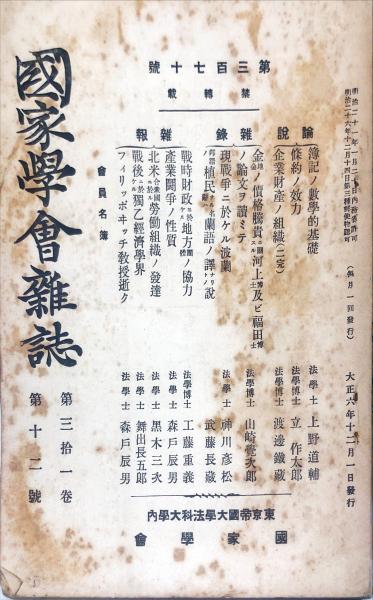 明治二十一年一月二十日內務省許可
明治二十六年十二月十四日第三種郵便物認可
(每月一回發行)
大正六年十二月一日發行
第三百七十號
禁轉載
論說
簿記ノ數學的基礎
法學士 上野道輔
條約ノ效力
法學博士 立作太郎
企業財產ノ組織(二完)
法學士 渡邊鐵藏
雜錄
金ノ價格騰貴ニ關スル河上及ビ福田博士
ノ論文ヲ讀ミテ
法學博士 山崎覺次郎
現戰爭ニ於ケル波蘭
法學士 神川彥松
植民ナル蘭語ノ譯ナリノ說
武藤長藏
雜報
戰時財政ニ於ケル地方團體ノ協力
法學博士 工藤重義
產業鬪爭ノ性質
法學士 森戶辰男
北米合衆國ニ於ケル勞働組織ノ發達
法學士 黑木三次
戰後ニ於ケル獨乙經濟學界
法學士 舞出長五郎
フィリッポヰッチ敎授逝ク
法學士 森戶辰男
會員名簿
東京帝國大學法科大學內
國家學會
國家學會雜誌
第三拾一卷
第十二號